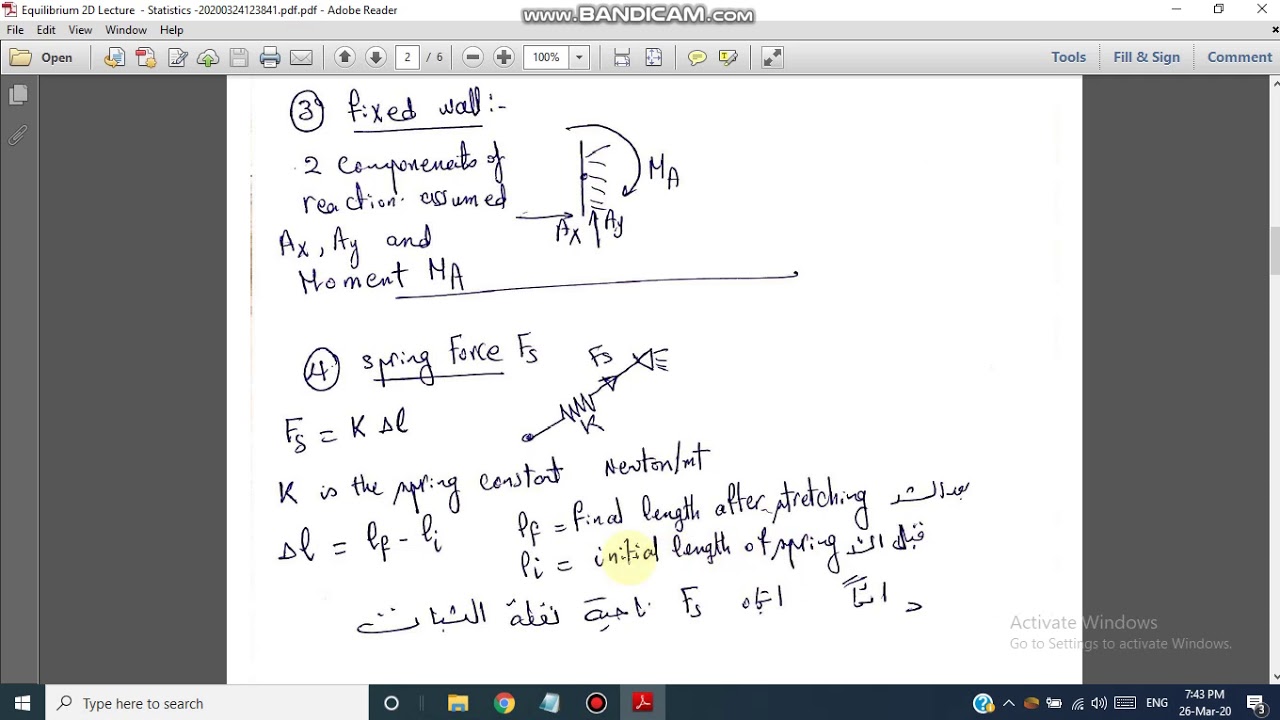 Equilibrium 2D Lecture - Statistics -20200324123841.pdf.pdf - Adobe Reader
www.BANDICAM.com
File Edit View Window Help
Open 2 / 6 100% Tools Fill & Sign Comment
③ fixed wall:-
2 componenets of
reaction assumed
Ax, Ay and
Moment MA
MA
Ax Ay
④ spring Force Fs
Fs
K
Fs = K Δl
K is the spring constant Newton/mt
Δl = lf - li
lf = final length after stretching بعد الشد
li = initial length of spring قبل الشد
دائماً اتجاه Fs ناحية نقطة الثبات
Activate Windows
Go to Settings to activate Windows.
Type here to search
ENG
7:43 PM
26-Mar-20
3